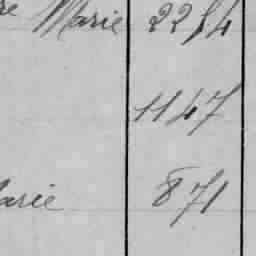 re Marie 2254
1147
Marie 871